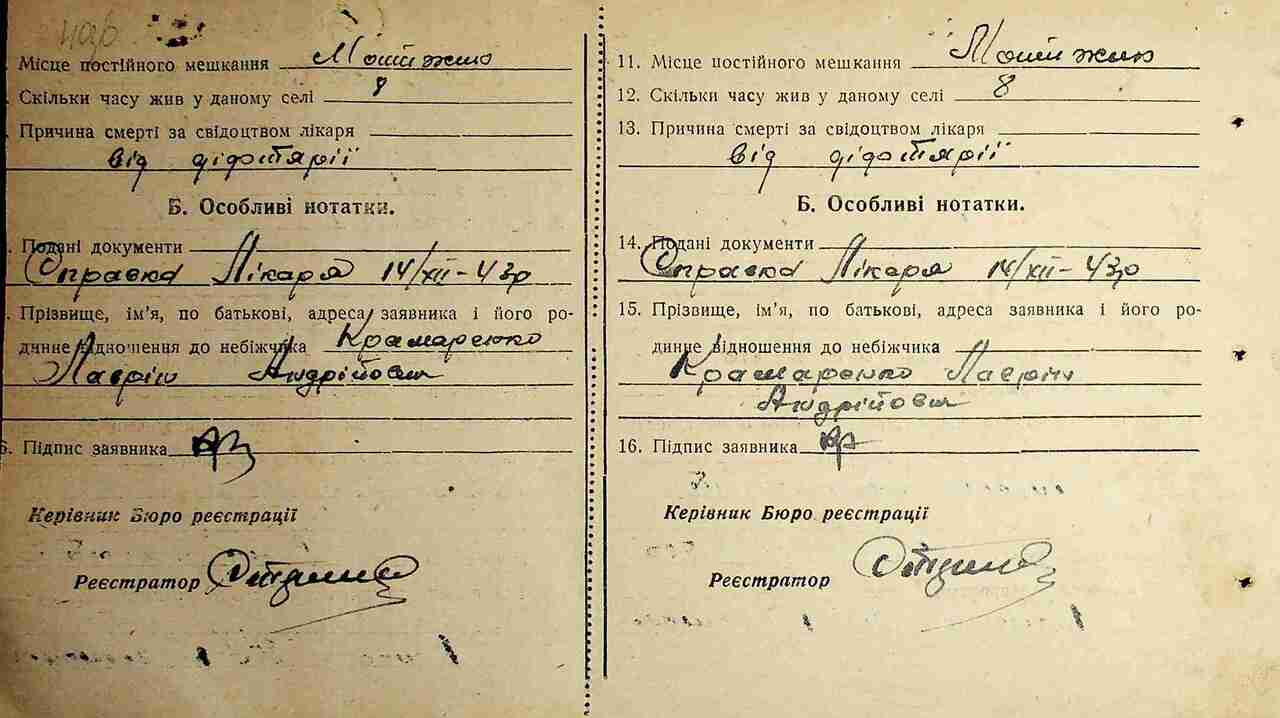 Місце постійного мешкання
Скільки часу жив у даному селі 8
Причина смерті за свідоцтвом лікаря
від діфтярії
Б. Особливі нотатки.
Подані документи
Справка Лікаря 14/XII-43р
Прізвище, ім'я, по батькові, адреса заявника і його ро-
динне відношення до небіжчика Крамаренко
Лаврін Андрійович
Підпис заявника
Керівник Бюро реєстрації
Реєстратор
11. Місце постійного мешкання
12. Скільки часу жив у даному селі 8
13. Причина смерті за свідоцтвом лікаря
від діфтярії
Б. Особливі нотатки.
14. Подані документи
Справка Лікаря 14/XII-43р
15. Прізвище, ім'я, по батькові, адреса заявника і його ро-
динне відношення до небіжчика
Крамаренко Лаврін
Андрійович
16. Підпис заявника
Керівник Бюро реєстрації
Реєстратор